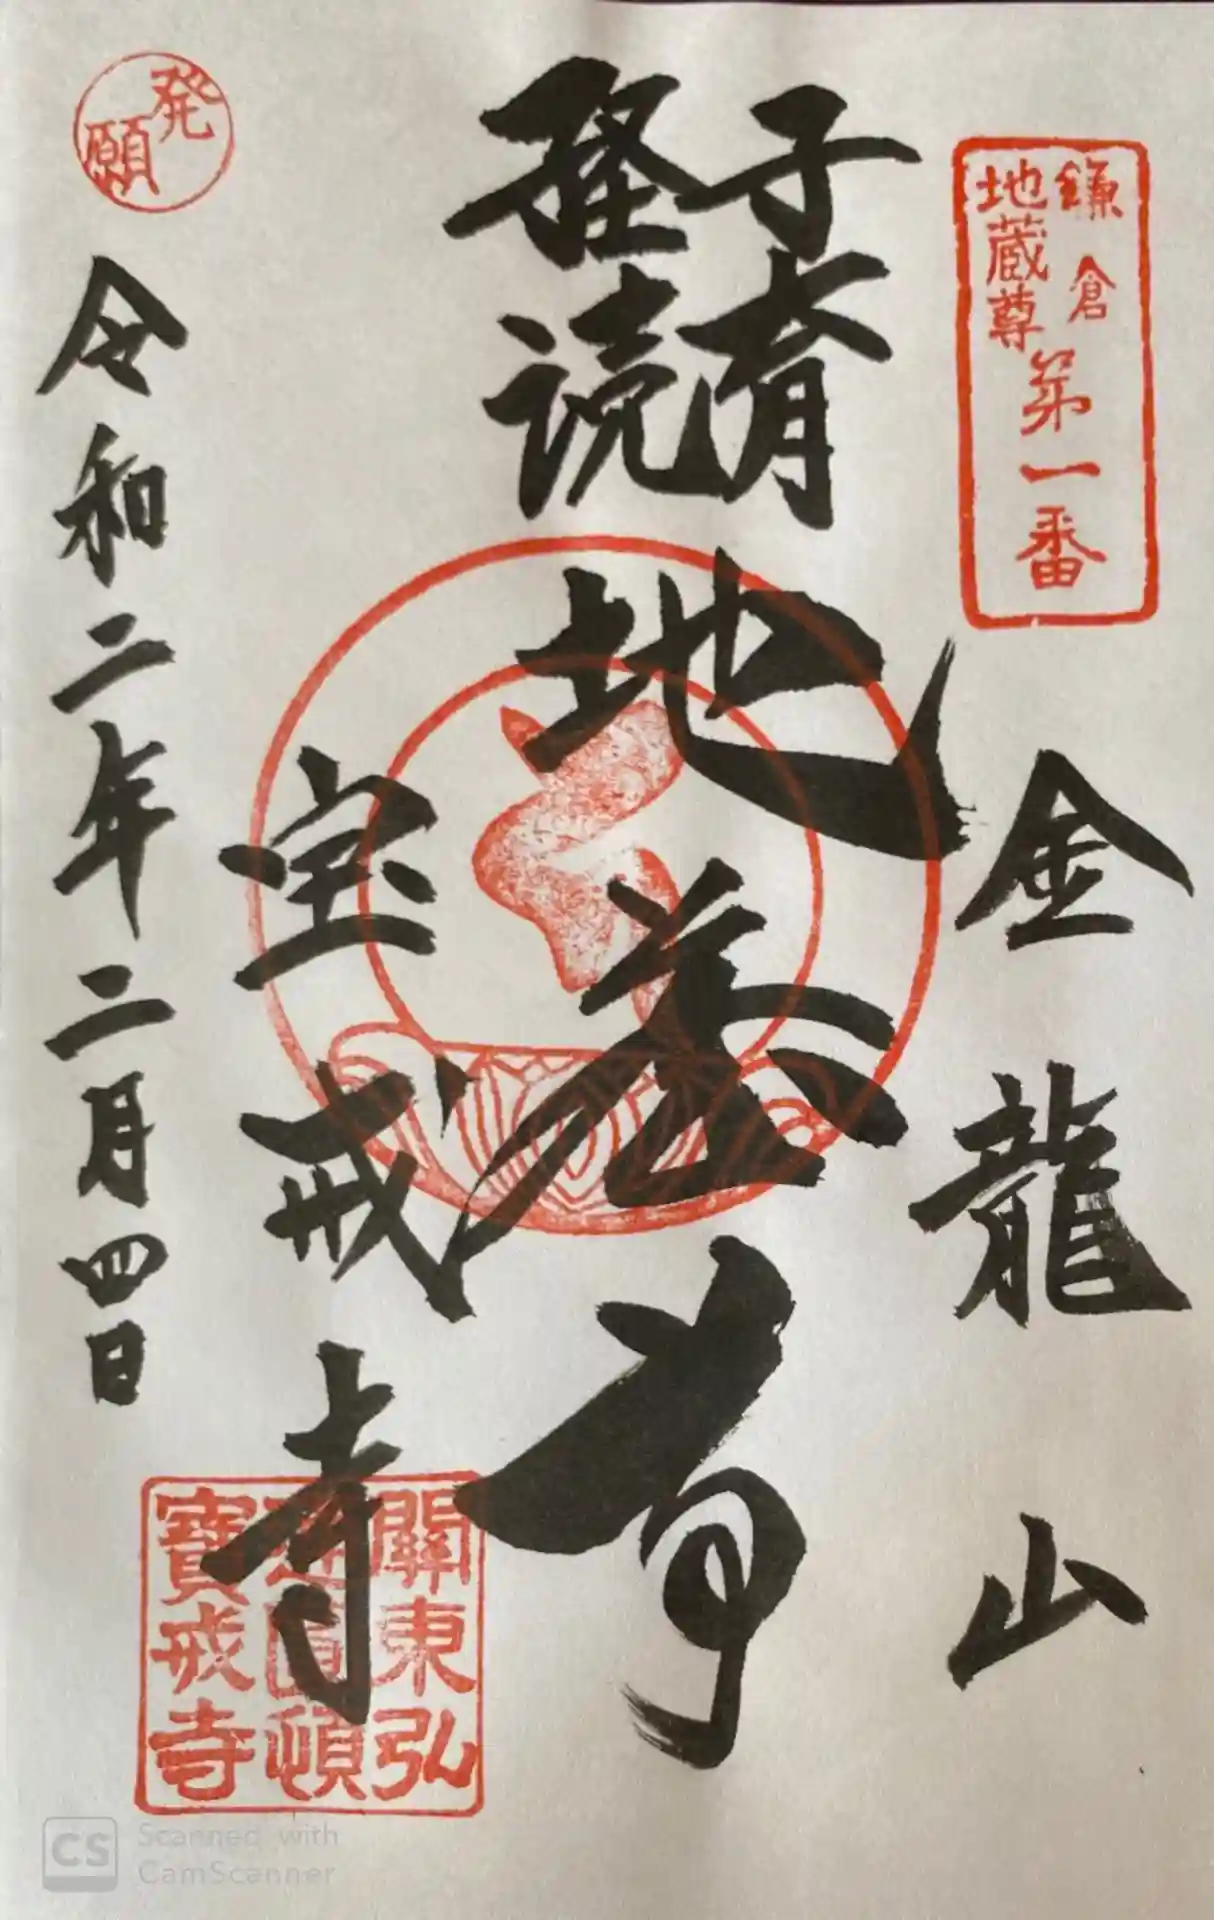 鎌倉
地蔵尊
第一番
金龍山
子育
経読
地蔵尊
宝戒寺
關東弘
圓頓
寶戒寺
発願
令和二年二月四日
CS Scanned with
CamScanner